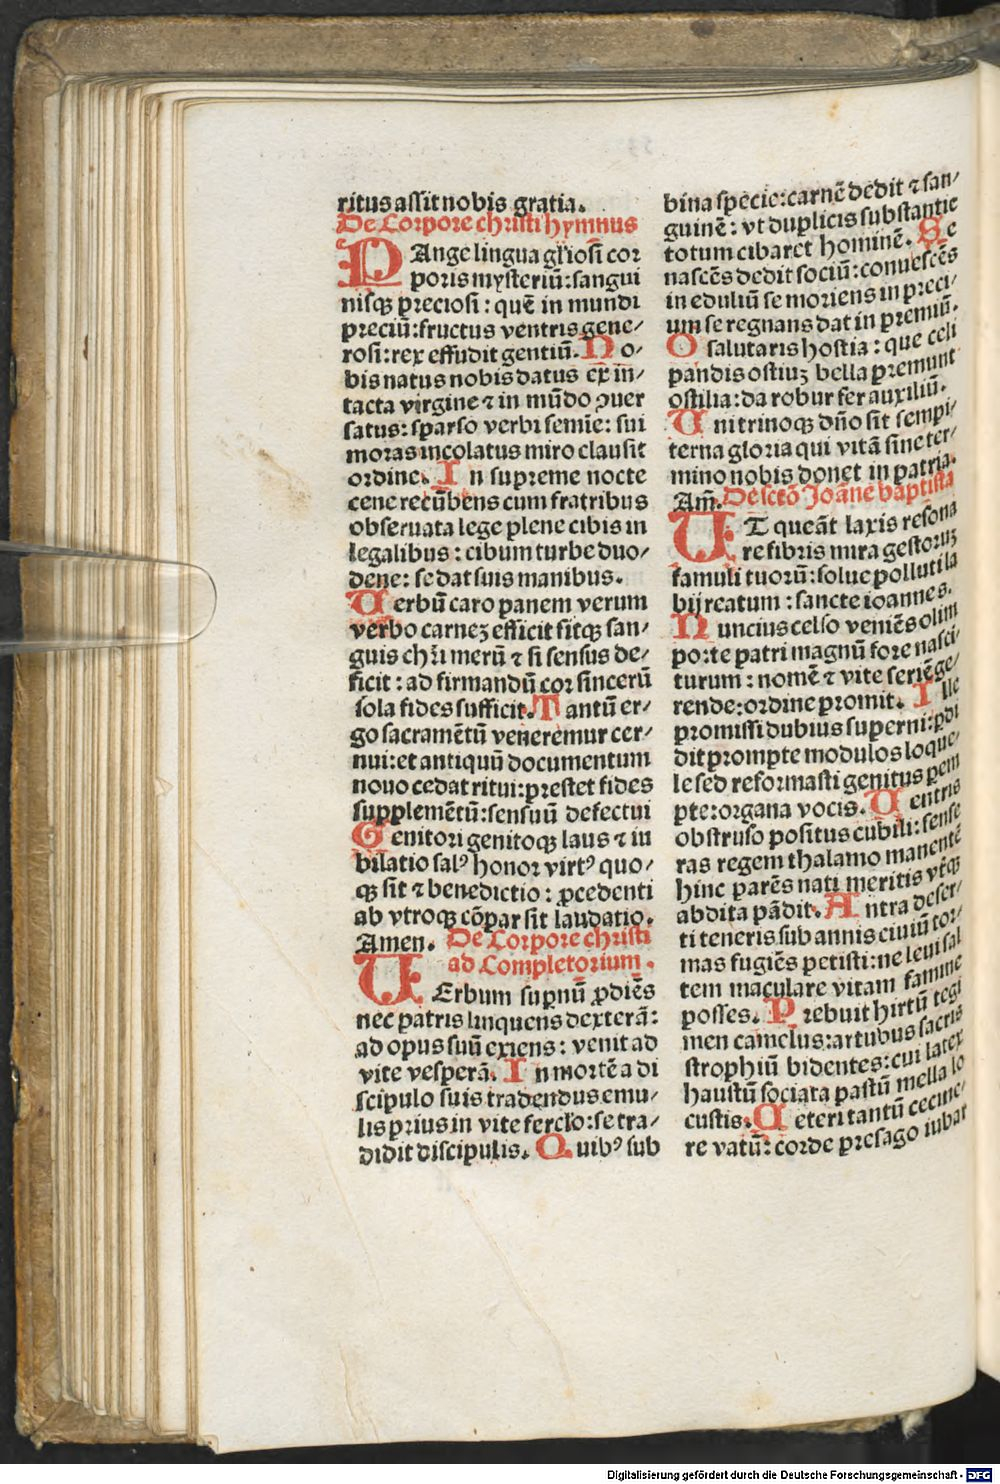 ritus assit nobis gratia.
De Corpore christi hymnus
PAnge lingua gl̄iosi cor
poris mysteriū: sangui
nisqꝫ preciosi: quē in mundi
preciū: fructus ventris gene/
rosi: rex effudit gentiū. No/
bis natus nobis datus ex in̄/
tacta virgine ⁊ in mūdo ꝯuer
satus: sparso verbi semīe: sui
moras incolatus miro clausit
ordine. In supreme nocte
cene recūbens cum fratribus
obseruata lege plene cibis in
legalibus: cibum turbe duo/
dene: se dat suis manibus.
Uerbū caro panem verum
verbo carneꝫ efficit fitqꝫ san/
guis chr̄i merū ⁊ si sensus de/
ficit: ad firmandū cor sincerū
sola fides sufficit. Tantū er/
go sacramētū veneremur cer/
nui: et antiquū documentum
nouo cedat ritui: prestet fides
supplemētū: sensuū defectui
Genitori genitoqꝫ laus ⁊ iu
bilatio salꝰ honor virtꝰ quo/
qꝫ sit ⁊ benedictio: ꝓcedenti
ab vtroqꝫ cōpar sit laudatio.
Amen. De Corpore christi
ad Completorium.
UErbum supnū ꝓdiēs
nec patris linquens dexterā:
ad opus suū exiens: venit ad
vite vesperā. In mortē a di
scipulo suis tradendus emu/
lis prius in vite fercl̄o: se tra/
didit discipulis. Quibꝰ sub
bina specie: carnē dedit ⁊ san/
guinē: vt duplicis substantie
totum cibaret hominē. Se
nascēs dedit sociū: conuescēs
in eduliū se moriens in preci/
um se regnans dat in premiū.
O salutaris hostia: que celi
pandis ostiuꝫ bella premunt
ostilia: da robur fer auxiliū.
Uni trinoqꝫ dn̄o sit sempi/
terna gloria qui vitā sine ter/
mino nobis donet in patria.
Am̄. De scтō Joāne baptista
UT queāt laxis resona
re fibris mira gestoruꝫ
famuli tuorū: solue polluti la
bij reatum: sancte ioannes.
Nuncius celso veniēs olim
po: te patri magnū fore nasci/
turum: nomē ⁊ vite seriē ge/
rende: ordine promit. Ille
promissi dubius superni: ꝑdi
dit prompte modulos loque/
le sed reformasti genitus pem
pte: organa vocis. Uentris
obstruso positus cubili: sense
ras regem thalamo manentē
hinc parēs nati meritis vtr̄qꝫ
abdita pādit. Antra deser/
ti teneris sub annis ciuiū tor/
mas fugiēs petisti: ne leui sal
tem maculare vitam famine
posses. Prebuit hirtū tegi
men camelus: artubus sacris
strophiū bidentes: cui latex
haustū sociata pastū mella lo
custis. Ceteri tantū cecine/
re vatū: corde presago iubar
Digitalisierung gefördert durch die Deutsche Forschungsgemeinschaft - DFG